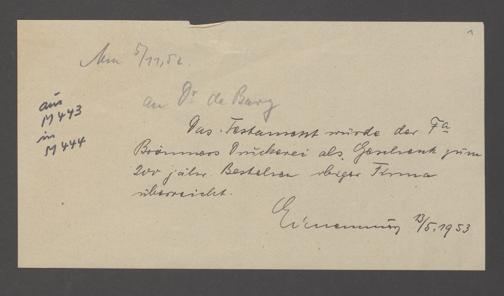 5/11.52
aus
M 443
in
M 444
an Dr de Bary
Das Testament wurde der Fa
Brönners Druckerei als Geschenk zum
200 jähr. Bestehen obiger Firma
überreicht.
13/5.1953